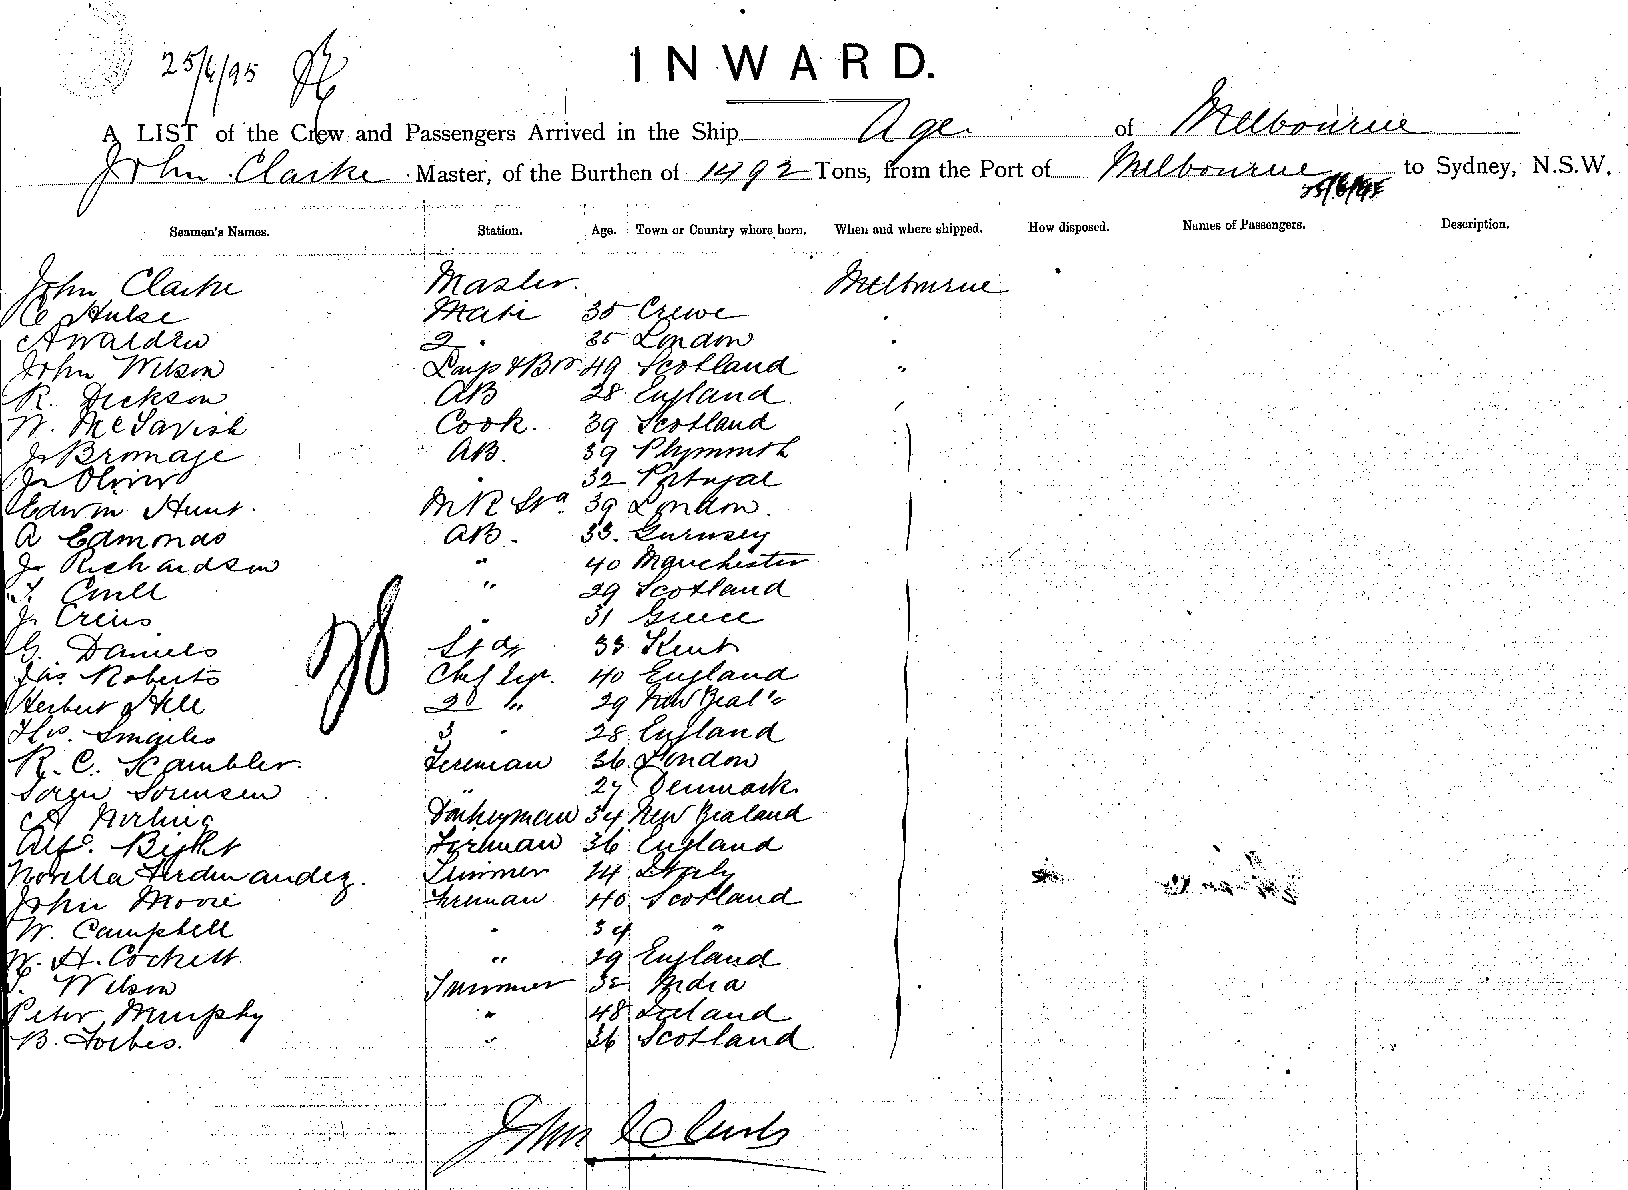 25/6/95
INWARD.
A LIST of the Crew and Passengers Arrived in the Ship Age of Melbourne
John Clarke Master, of the Burthen of 1492 Tons, from the Port of Melbourne to Sydney, N.S.W.
25/6/95
Seamen's Names. Station. Age. Town or Country where born. When and where shipped. How disposed. Names of Passengers. Description.
John Clarke Master. Melbourne
C Hulse Mate 35 Crewe
A Waldren 2 " 35 London
John Wilson Lamps & Bos 49 Scotland "
R. Dickson AB 28 England
W. McTavish Cook. 39 Scotland
J. Bromage AB. 39 Plymouth
J. Oliver " 32 Portugal
Edwin Hunt. 39 London.
A Edmonds AB. 33. Guernsey
J. Richardson " 40 Manchester
T. Coull " 29 Scotland
J. Creus " 31 Greece
G. Daniels 33 Kent
Jas. Roberts Chf Engr. 40 England
Herbert Hill 2d " 29 New Zeal'd
Thos. Smailes 3 " 28 England
R. C. Scambler. Fireman 36 London
Soren Sorensen " 27 Denmark
A Donkeyman 34 New Zealand
Alfd. Bight Fireman 36 England
Novella Ferdinandez. Trimmer 24 Italy
John Moore Fireman 40 Scotland
W. Campbell " 34 "
W. H. Cockett " 29 England
Wilson Trimmer India
Peter Murphy " 48 Ireland
B. Forbes. " 36 Scotland
John Clarke